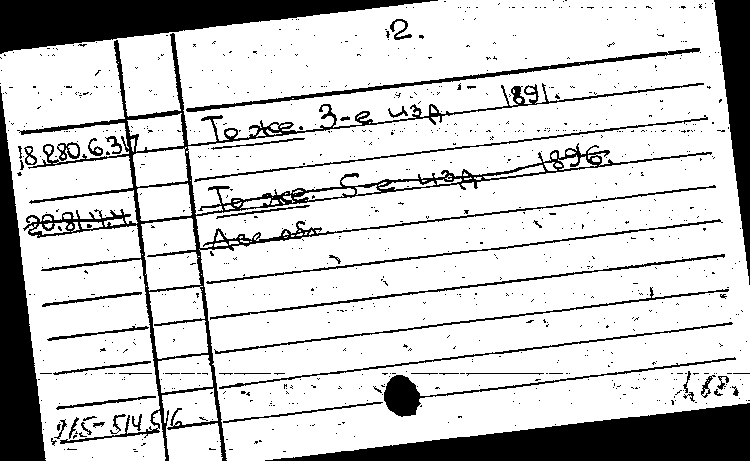 2.
18.280.6.317. То же. 3-е изд. 1891.
20.81.4.4. То же. 5-е изд. 1896.
Две обл.
265-514,516